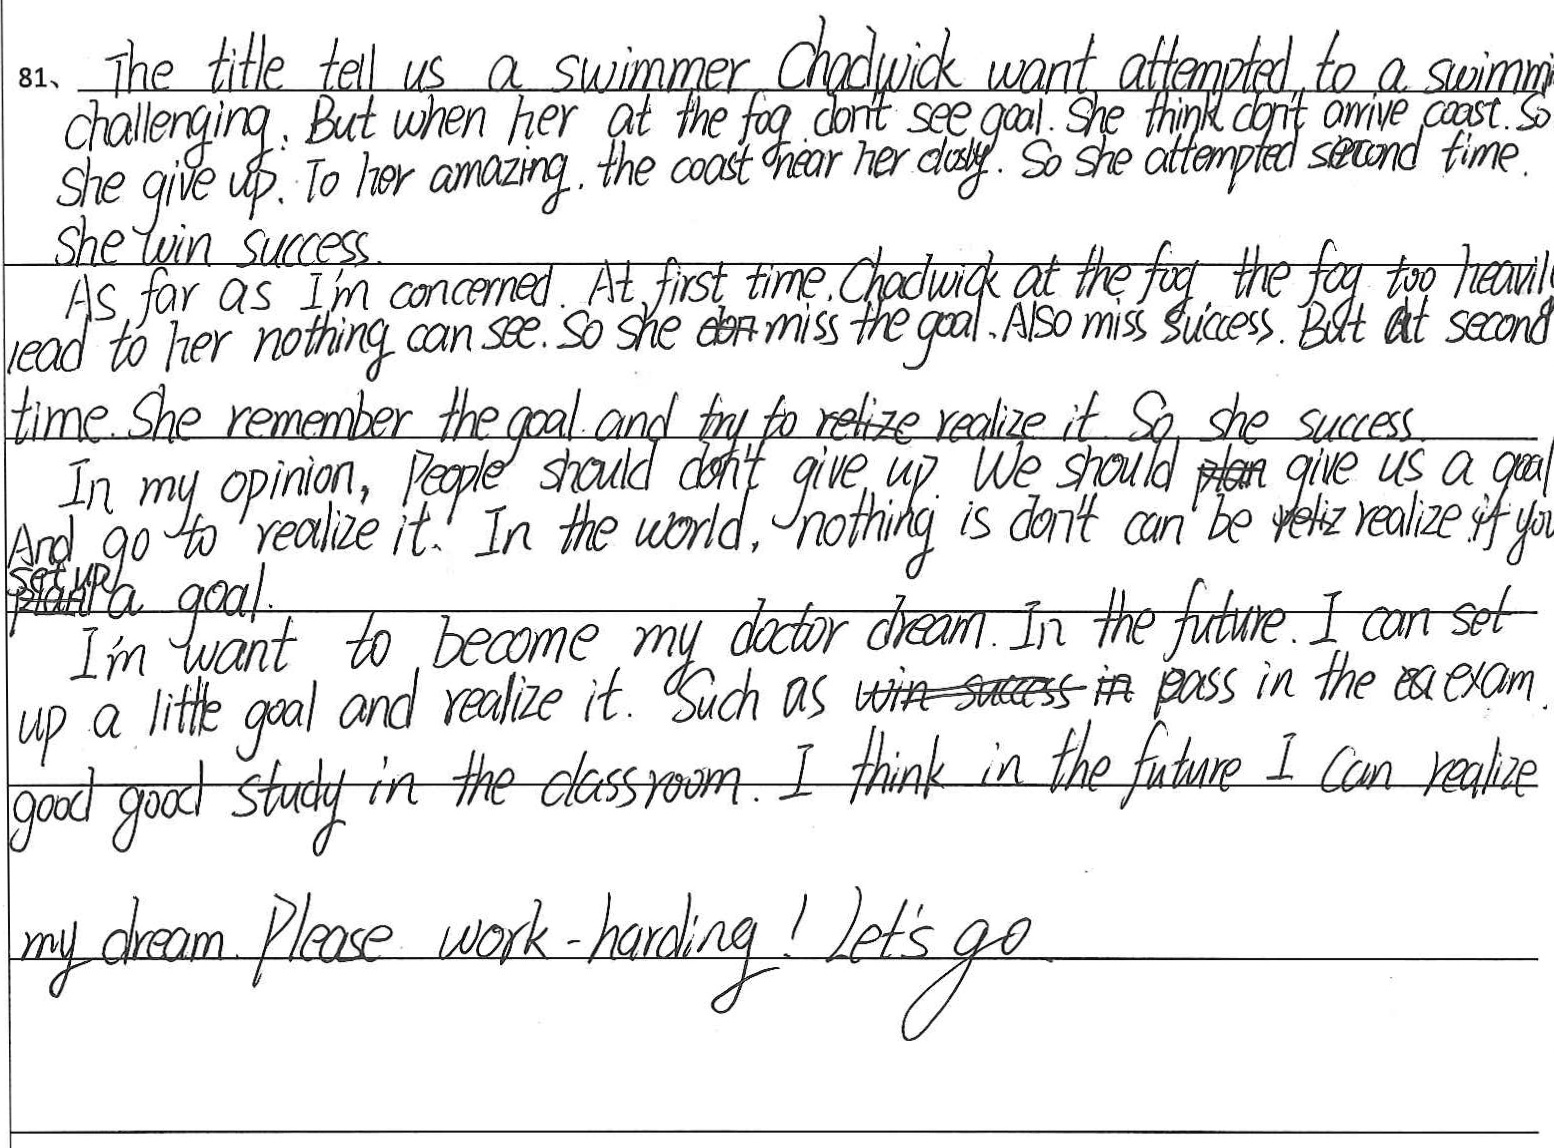 81、 The title tell us a swimmer Chadwick want attempted to a swimmi
challenging. But when her at the fog don't see goal. She think don't arrive coast. So
she give up. To her amazing. the coast near her closly. So she attempted second time.
She win success.
As far as I'm concerned. At first time. Chadwick at the fog the fog too heavil
lead to her nothing can see. So she miss the goal. Also miss success. But at second
time. She remember the goal. and try to relize realize it. So she success.
In my opinion, People should don't give up. We should plan give us a goal
And go to realize it. In the world, nothing is don't can be reliz realize if you
set up
plant a goal.
I'm want to become my doctor dream. In the future. I can set
up a little goal and realize it. Such as win success in pass in the exam.
good good study in the classroom. I think in the future I can realize
my dream. Please work-harding! Let's go.